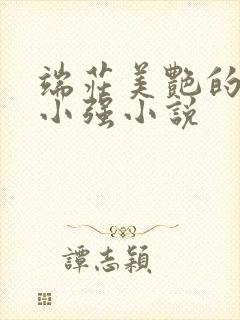 端莊美艷的
小强小說
譚志穎